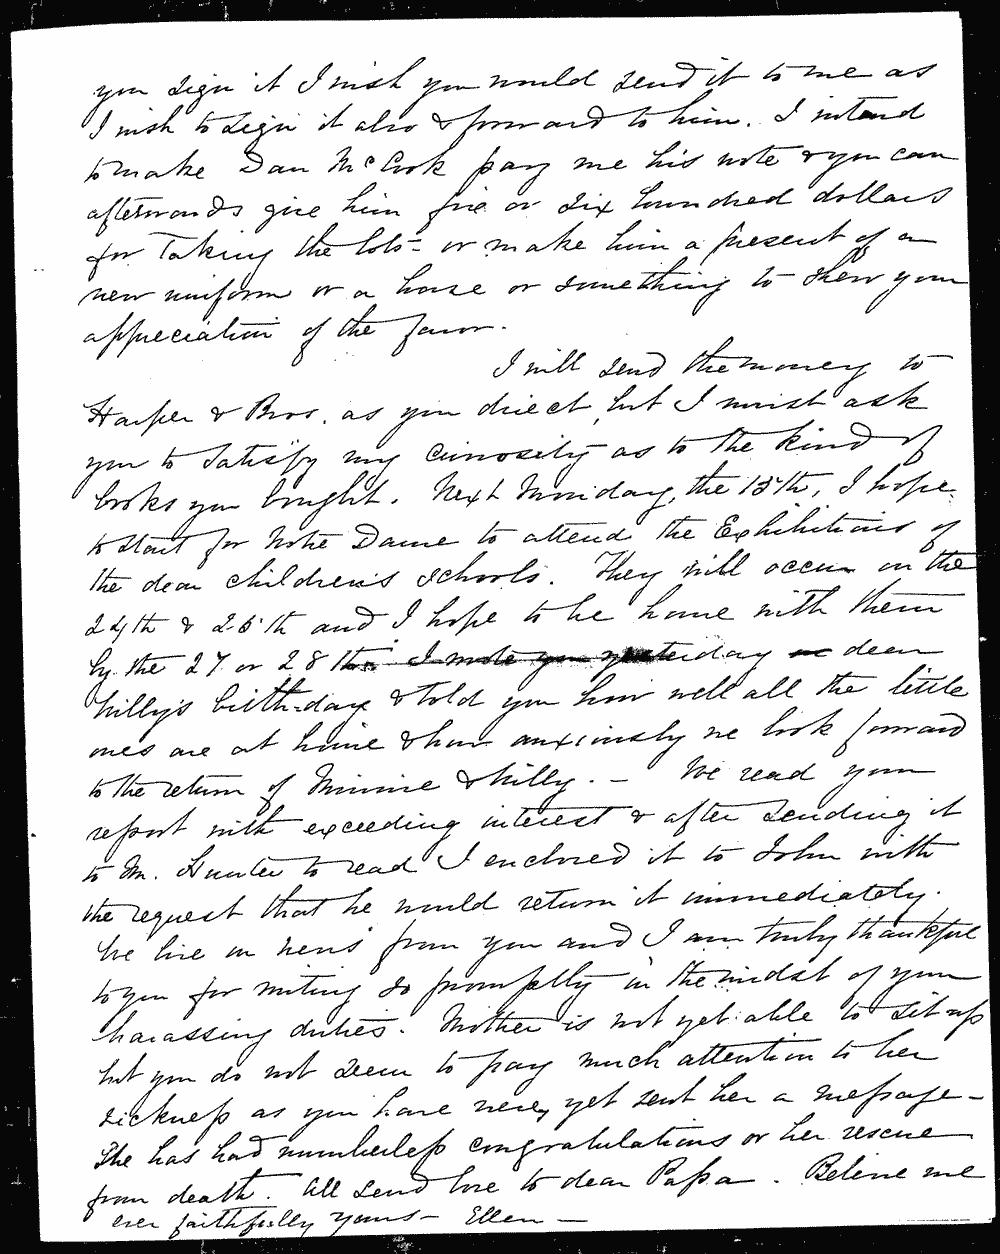 you sign it I wish you would send it to me as
I wish to sign it also & forward to him. I intend
to make Dan McCook pay me his note & you can
afterwards give him five or six hundred dollars
for Taking the lots - or make him a present of a
new uniform or a horse or something to show your
appreciation of the favor.
I will send the money to
Harper & Bros. as you direct, but I must ask
you to satisfy my curiosity as to the kind of
books you bought. Next Monday, the 15th, I hope
to start for Notre Dame to attend the Exhibitions of
the dear children's schools. They will occur on the
24th & 25th and I hope to be home with them
by the 27 or 28th. I wrote you yesterday dear
Willy's birth-day & told you how well all the little
ones are at home & how anxiously we look forward
to the return of Minnie & Willy. - We read your
report with exceeding interest & after sending it
to Mr. Hunter to read I enclosed it to John with
the request that he would return it immediately.
We live on news from you and I am truly thankful
to you for writing so promptly in the midst of your
harassing duties. Mother is not yet able to sit up
but you do not seem to pay much attention to her
sickness as you have never yet sent her a message -
She has had numberless congratulations on her rescue
from death. All send love to dear Papa. Believe me
ever faithfully yours - Ellen -